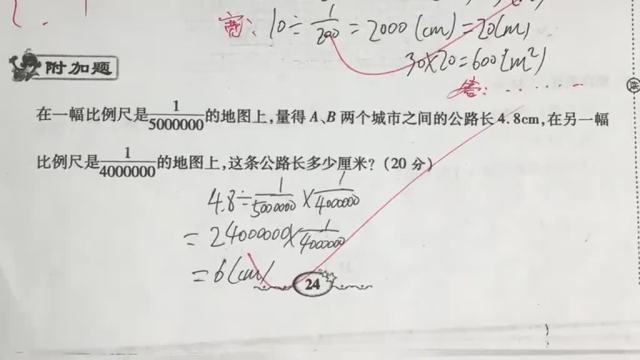 宽: 10÷1/200=2000(cm)=20(m)
30×20=600(m²)
答: ......
附加题
在一幅比例尺是1/5000000的地图上,量得A、B两个城市之间的公路长4.8cm,在另一幅
比例尺是1/4000000的地图上,这条公路长多少厘米?(20分)
4.8÷1/5000000×1/4000000
=24000000×1/4000000
=6(cm)
24